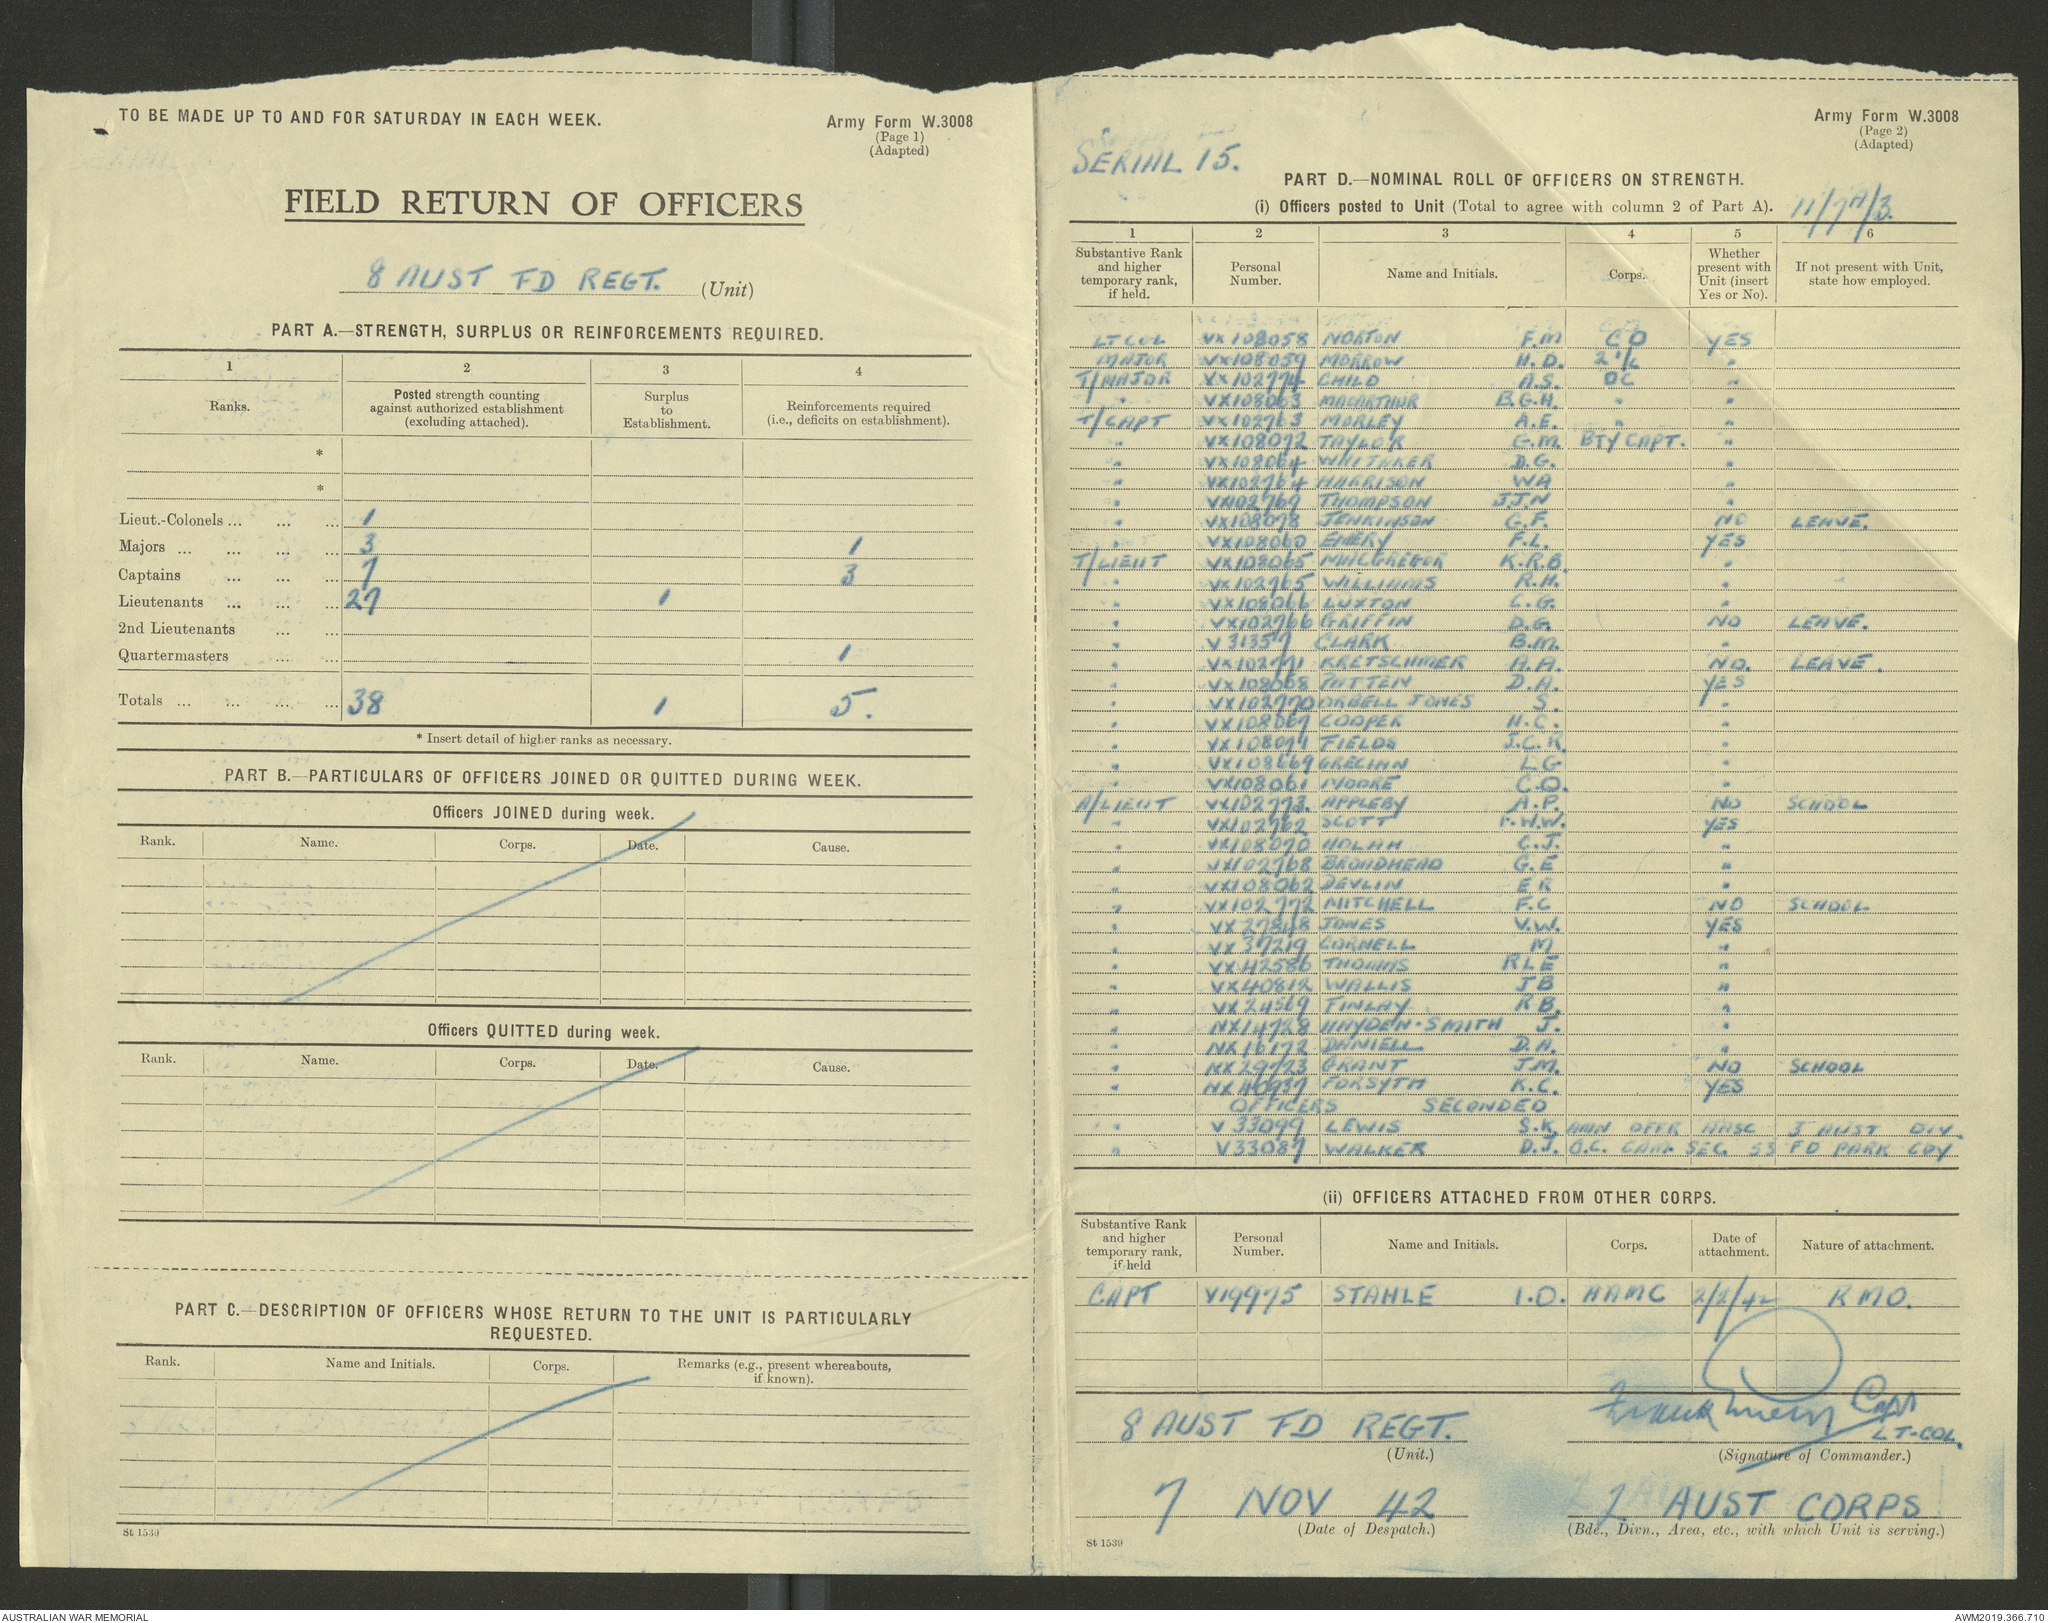 TO BE MADE UP TO AND FOR SATURDAY IN EACH WEEK.
Army Form W.3008
(Page 1)
(Adapted)
FIELD RETURN OF OFFICERS
8 AUST FD REGT. (Unit)
PART A.—STRENGTH, SURPLUS OR REINFORCEMENTS REQUIRED.
1 2 3 4
Ranks. Posted strength counting against authorized establishment (excluding attached). Surplus to Establishment. Reinforcements required (i.e., deficits on establishment).
*
*
Lieut.-Colonels ... ... ... 1
Majors ... ... ... ... 3 1
Captains ... ... ... 7 3
Lieutenants ... ... ... 27 1
2nd Lieutenants ... ...
Quartermasters ... ... 1
Totals ... ... ... ... 38 1 5.
* Insert detail of higher ranks as necessary.
PART B.—PARTICULARS OF OFFICERS JOINED OR QUITTED DURING WEEK.
Officers JOINED during week.
Rank. Name. Corps. Date. Cause.
Officers QUITTED during week.
Rank. Name. Corps. Date. Cause.
PART C.—DESCRIPTION OF OFFICERS WHOSE RETURN TO THE UNIT IS PARTICULARLY
REQUESTED.
Rank. Name and Initials. Corps. Remarks (e.g., present whereabouts, if known).
St 1539
Army Form W.3008
(Page 2)
(Adapted)
SERIAL 15.
PART D.—NOMINAL ROLL OF OFFICERS ON STRENGTH.
(i) Officers posted to Unit (Total to agree with column 2 of Part A). 11/7A/3.
1 2 3 4 5 6
Substantive Rank and higher temporary rank, if held. Personal Number. Name and Initials. Corps. Whether present with Unit (insert Yes or No). If not present with Unit, state how employed.
LT COL VX108058 NORTON F.M CO YES
MAJOR VX108059 MORROW H.D. 2 I/C "
T/MAJOR VX102774 CHILD A.S. OC "
" VX108063 MACARTHUR B.G.H. " "
T/CAPT VX102763 MORLEY A.E. " "
" VX108072 TAYLOR G.M. BTY CAPT. "
" VX108064 WHITAKER D.G. "
" VX102764 HARRISON WA "
" VX102769 THOMPSON J.J.N "
" VX108078 JENKINSON G.F. NO LEAVE.
" VX108060 EMERY F.L. YES
T/LIEUT VX108065 MACGREGOR K.R.B. "
" VX102765 WILLIAMS R.H. "
" VX108066 LUXTON C.G. "
" VX102766 GRIFFIN D.G. NO LEAVE.
" V 31357 CLARK B.M. "
" VX102771 KRETSCHMER A.A. NO. LEAVE.
" VX108068 PATTEN D.A. YES
" VX102770 ORBELL JONES S. "
" VX108067 COOPER H.C. "
" VX108074 FIELDS J.C.R. "
" VX108669 GRECIAN L G "
" VX108061 MOORE C.O. "
A/LIEUT VX102773. APPLEBY A.P. NO SCHOOL
" VX102762 SCOTT F.W.W. YES
" VX108070 HOLAH C.J. "
" VX102768 BROADHEAD G.E "
" VX108062 DEVLIN E R "
" VX102772 MITCHELL F.C NO SCHOOL
" VX 27848 JONES V.W. YES
" VX 37219 CORNELL M "
" VX42586 THOMAS R L E "
" VX40812 WALLIS J B "
" VX24569 FINLAY R B. "
" NX14728 HAYDEN-SMITH J. "
" NX16172 DANIELL D.A. "
" NX 29723 GRANT J.M. NO SCHOOL
" NX 40937 FORSYTH K.C. YES
OFFICERS SECONDED
" V 33099 LEWIS S.K. AMN OFFR AASC 3 AUST DIV.
" V33087 WALKER D.J. O.C. CAM. SEC 53 FD PARK COY
(ii) OFFICERS ATTACHED FROM OTHER CORPS.
Substantive Rank and higher temporary rank, if held Personal Number. Name and Initials. Corps. Date of attachment. Nature of attachment.
CAPT V19975 STAHLE I.O. AAMC 2/2/42 RMO.
Capt
LT-COL.
8 AUST FD REGT.
(Unit.) (Signature of Commander.)
7 NOV 42 2 AUST CORPS
(Date of Despatch.) (Bde., Divn., Area, etc., with which Unit is serving.)
St 1539
AUSTRALIAN WAR MEMORIAL
AWM2019.366.710